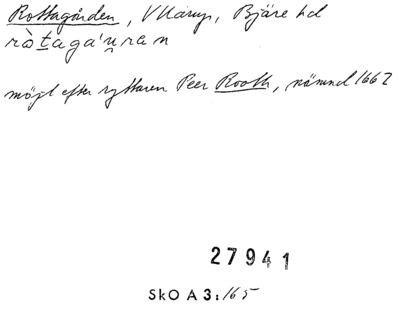 Rottagården, V Karup, Bjäre hd
ròtaga'u̯ran
möjl efter ryttaren Peer Rooth, nämnd 1662
27941
SkO A 3:165